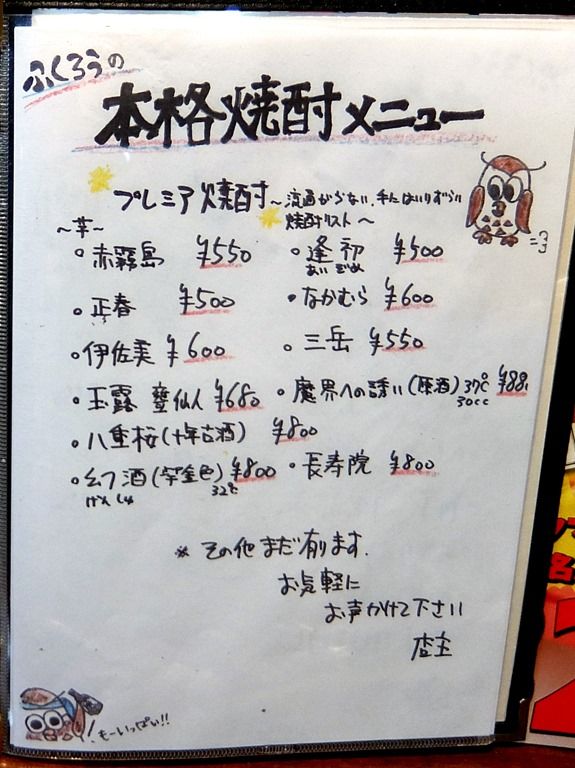 ふくろうの
本格焼酎メニュー
プレミア焼酎～流通が少ない、手にはいりずらい
焼酎リスト～
～芋～
・赤霧島 ¥550
・逢初 ¥500
あい ぞめ
・正春 ¥500
・なかむら ¥600
・伊佐美 ¥600
・三岳 ¥550
・玉露 甕仙人 ¥680
・魔界への誘い(原酒) 37℃
30cc
・八重桜(十年古酒) ¥800
・幻酒(紫金色) ¥800
げんしゅ
32℃
・長寿院 ¥800
※その他まだ有ります.
お気軽に
お声かけて下さい
店主
も～いっぱい!!